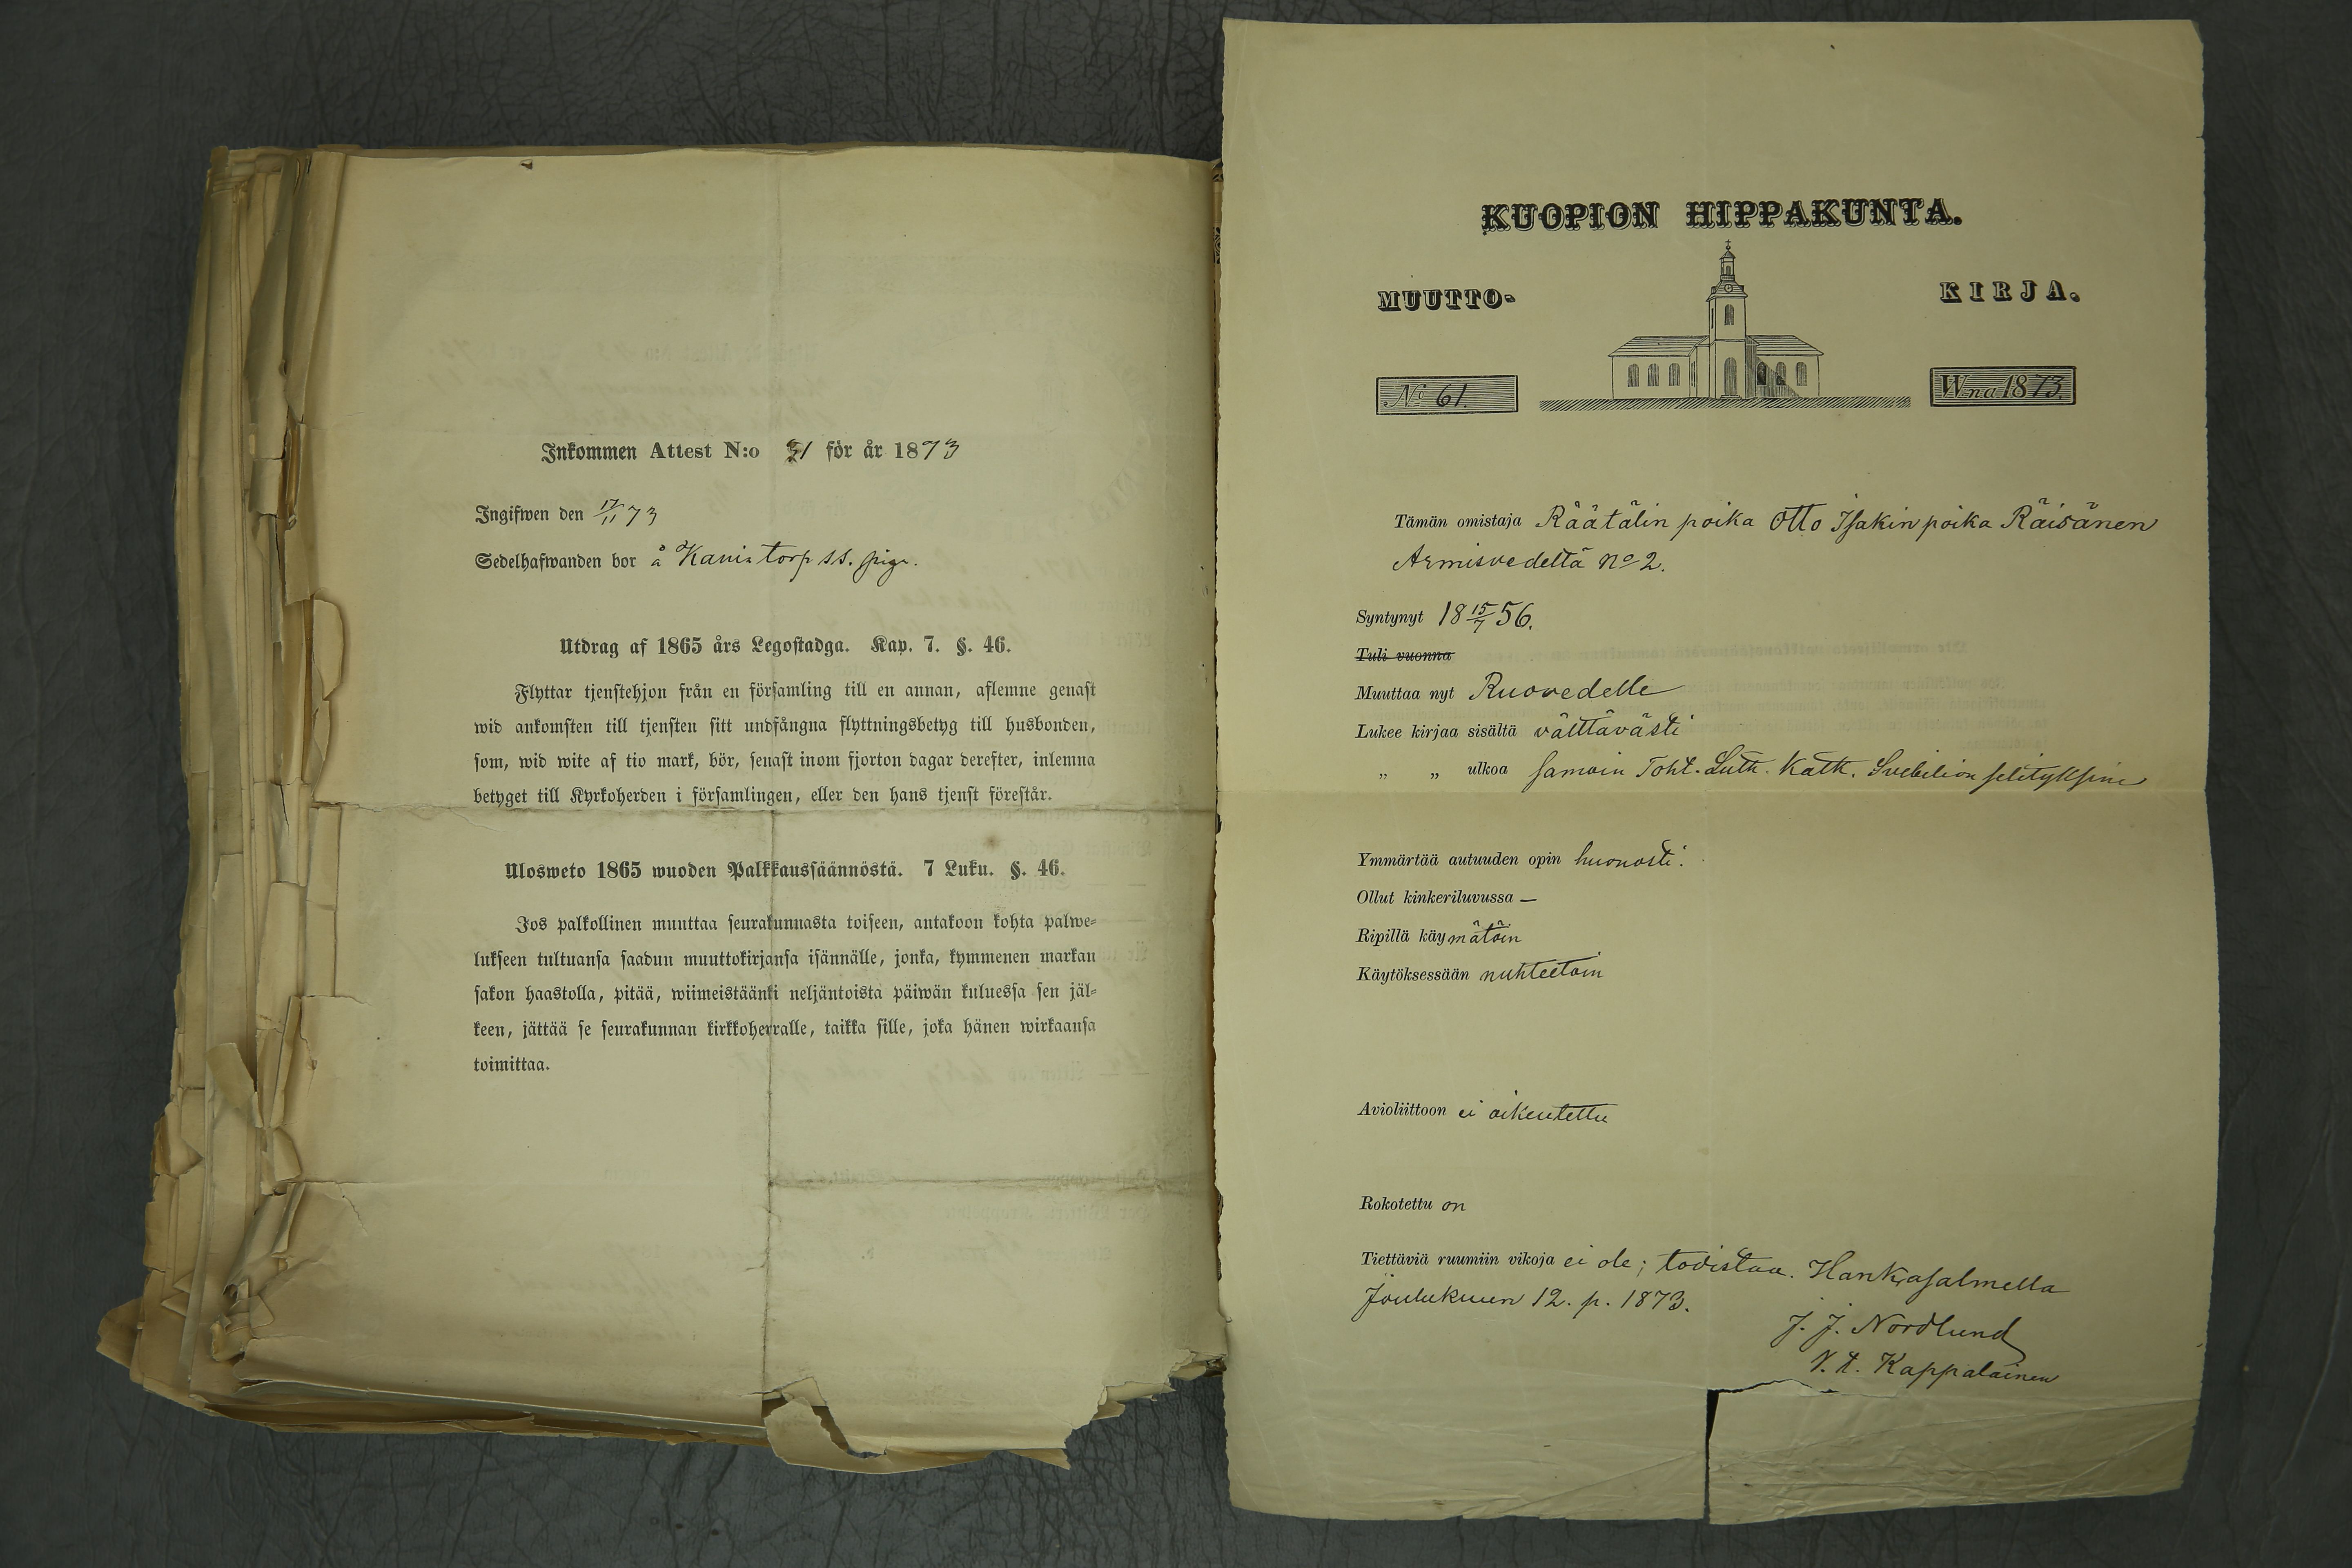 Inkommen Attest N:o 31 för år 1873
Ingifwen den 17/11 73
Sedelhafwanden bor å torp ss. pig.
Utdrag af 1865 års Legostadga. Kap. 7. §. 46.
Flyttar tjenstehjon från en församling till en annan, aflemne genast
wid ankomsten till tjensten sitt undfångna flyttningsbetyg till husbonden,
som, wid wite af tio mark, bör, senast inom fjorton dagar derefter, inlemna
betyget till Kyrkoherden i församlingen, eller den hans tjenst förestår.
Ulosweto 1865 wuoden Palkkaussäännöstä. 7 Luku. §. 46.
Jos palkollinen muuttaa seurakunnasta toiseen, antakoon kohta palwe-
lukseen tultuansa saadun muuttokirjansa isännälle, jonka, kymmenen markan
sakon haastolla, pitää, wiimeistäänki neljäntoista päiwän kuluessa sen jäl-
keen, jättää se seurakunnan kirkkoherralle, taikka sille, joka hänen wirkaansa
toimittaa.
KUOPION HIPPAKUNTA.
MUUTTO- KIRJA.
No 61. Wna 1873.
Tämän omistaja Räätälin poika Otto Isakin poika Räisänen
Armisvedeltä No 2.
Syntynyt 18 15/7 56.
Tuli vuonna
Muuttaa nyt Ruovedelle
Lukee kirjaa sisältä välttävästi
„ „ ulkoa samoin Toht. Luth. Kath. Svebilion selityksine
Ymmärtää autuuden opin huonosti.
Ollut kinkeriluvussa —
Ripillä käymätöin
Käytöksessään nuhteetoin
Avioliittoon ei oikeutettu
Rokotettu on
Tiettäviä ruumiin vikoja ei ole; todistaa. Hankasalmella
Joulukuun 12. p. 1873.
J. J. Nordlund
V. t. Kappalainen